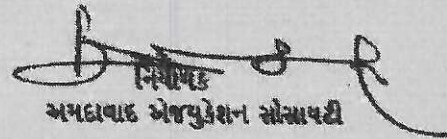 નિયામક
અમદાવાદ એજ્યુકેશન સોસાયટી